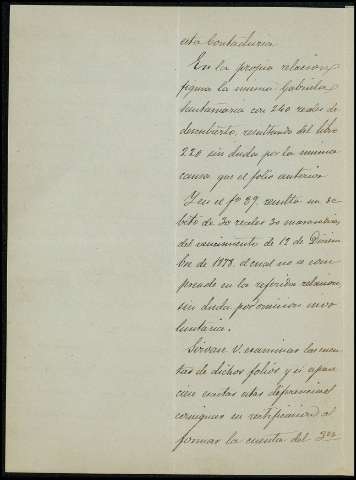 esta Contaduria
En la propia relacion
figura la misma Gabriela
Santamaria con 240 reales de
descubierto, resultando del libro
220 sin duda por la misma
causa que el folio anterior
Y en el fº 89 resulta un de
bito de 30 reales 30 maravedises
del vencimiento de 12 de Diciem
bre de 1878. el cual no se com
prende en la referida relacion,
sin duda por omision invo
luntaria.
Sirvan V. examinar las cuen
tas de dichos folios y si apare
cen exactas estas diferencias
consignese su rectificacion al
formar la cuenta del 3er